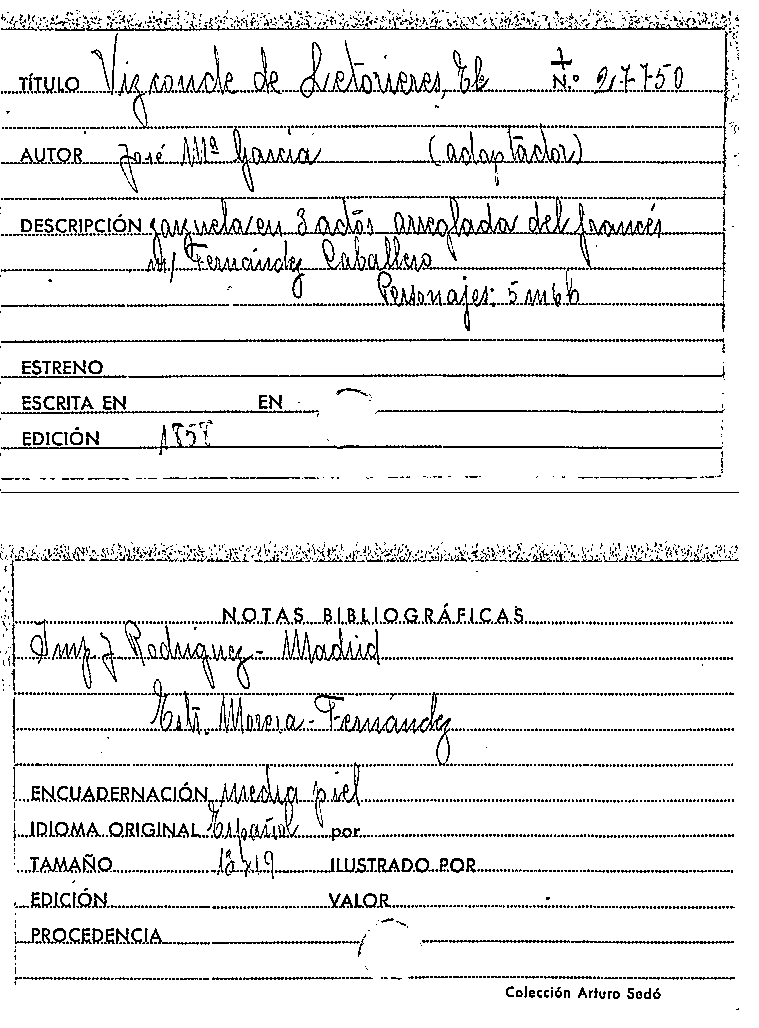 TÍTULO Vizconde de Letorieres, El + N.º 27750
AUTOR José Mª García (adaptador)
DESCRIPCIÓN zarzuela en 3 actos arreglada del francés
m/ Fernández Caballero
Personajes: 5 m 6 h
ESTRENO
ESCRITA EN EN
EDICIÓN 1858
NOTAS BIBLIOGRÁFICAS
Imp. J. Rodriguez - Madrid
Estr. Morera - Fernández
ENCUADERNACIÓN media piel
IDIOMA ORIGINAL Español por
TAMAÑO 13x19 ILUSTRADO POR
EDICIÓN VALOR
PROCEDENCIA
Colección Arturo Sedó